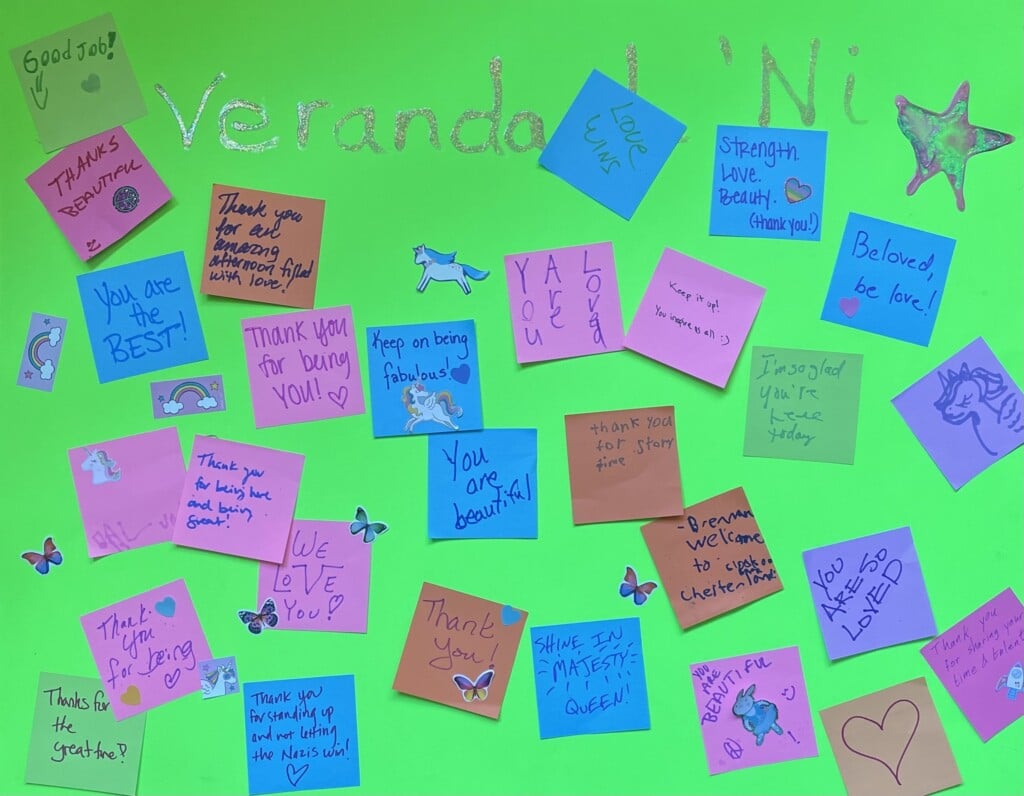 Veranda L 'Ni
Good Job!
THANKS
BEAUTIFUL
Thank you
for an
amazing
afternoon filled
with love!
LOVE
WINS
Strength.
Love.
Beauty.
(thank you!)
Beloved,
be love!
You are
the
BEST!
Thank you
for being
YOU!
Keep on being
fabulous!
You Are Loved
Keep it up!
You inspire us all :)
I'm so glad
you're
here
today
Thank you
for being here
and being
great!
You
are
beautiful
thank you
for story
time
-Brennan
welcome
to
WE
LOVE
You!
YOU
ARE SO
LOVED
Thank
you
for being
Thank
you!
SHINE IN
MAJESTY
QUEEN!
YOU
ARE
BEAUTIFUL
!
Thank you
for sharing your
time & talent
Thanks for
the
great time!
Thank you
for standing up
and not letting
the Nazis win!